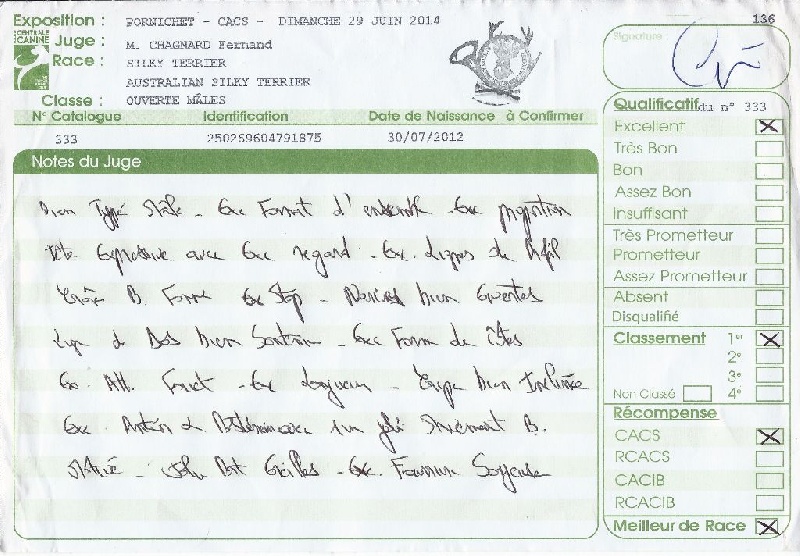 136
Exposition : PORNICHET - CACS - DIMANCHE 29 JUIN 2014
CENTRALE CANINE
Juge : M. CHAGNARD Fernand
Race : SILKY TERRIER
AUSTRALIAN SILKY TERRIER
Classe : OUVERTE MÂLES
Signature :
N° Catalogue Identification Date de Naissance à Confirmer
333 250269604791875 30/07/2012
Notes du Juge
Bien Typé Mâle - Exc Format d'ensemble - Exc proportion
Tête Expressive avec Exc regard - Ex. Lignes de Profil
Crâne B. Formé Exc Stop - Narines bien ouvertes
Ligne de Dos bien Soutenue - Exc Forme de Côtes
Ex. Att. Fouet - Exc Longueur - Croupe bien Inclinée
Exc
B.
Exc. Fourrure Soyeuse
Qualificatif du n° 333
Excellent X
Très Bon
Bon
Assez Bon
Insuffisant
Très Prometteur
Prometteur
Assez Prometteur
Absent
Disqualifié
Classement 1er X
2e
3e
Non Classé 4e
Récompense
CACS X
RCACS
CACIB
RCACIB
Meilleur de Race X